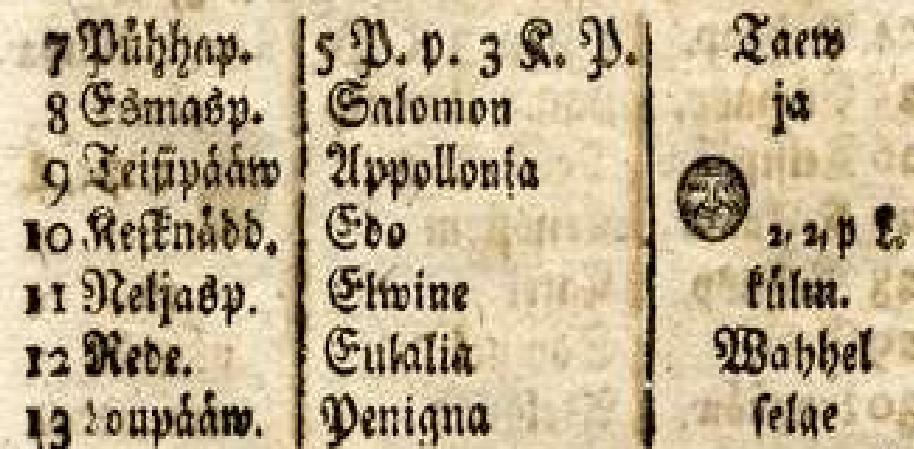 7 Pühhap. 5 P. p. 3 K. P. Taew
8 Esmasp. Salomon ja
9 Teisipääw Appollonia
10 Keſknädd. Edo 2, 2, p k.
11 Neljasp. Elwine külm.
12 Rede. Eulalia Wahhel
13 Loupääw. Penigna ſelge